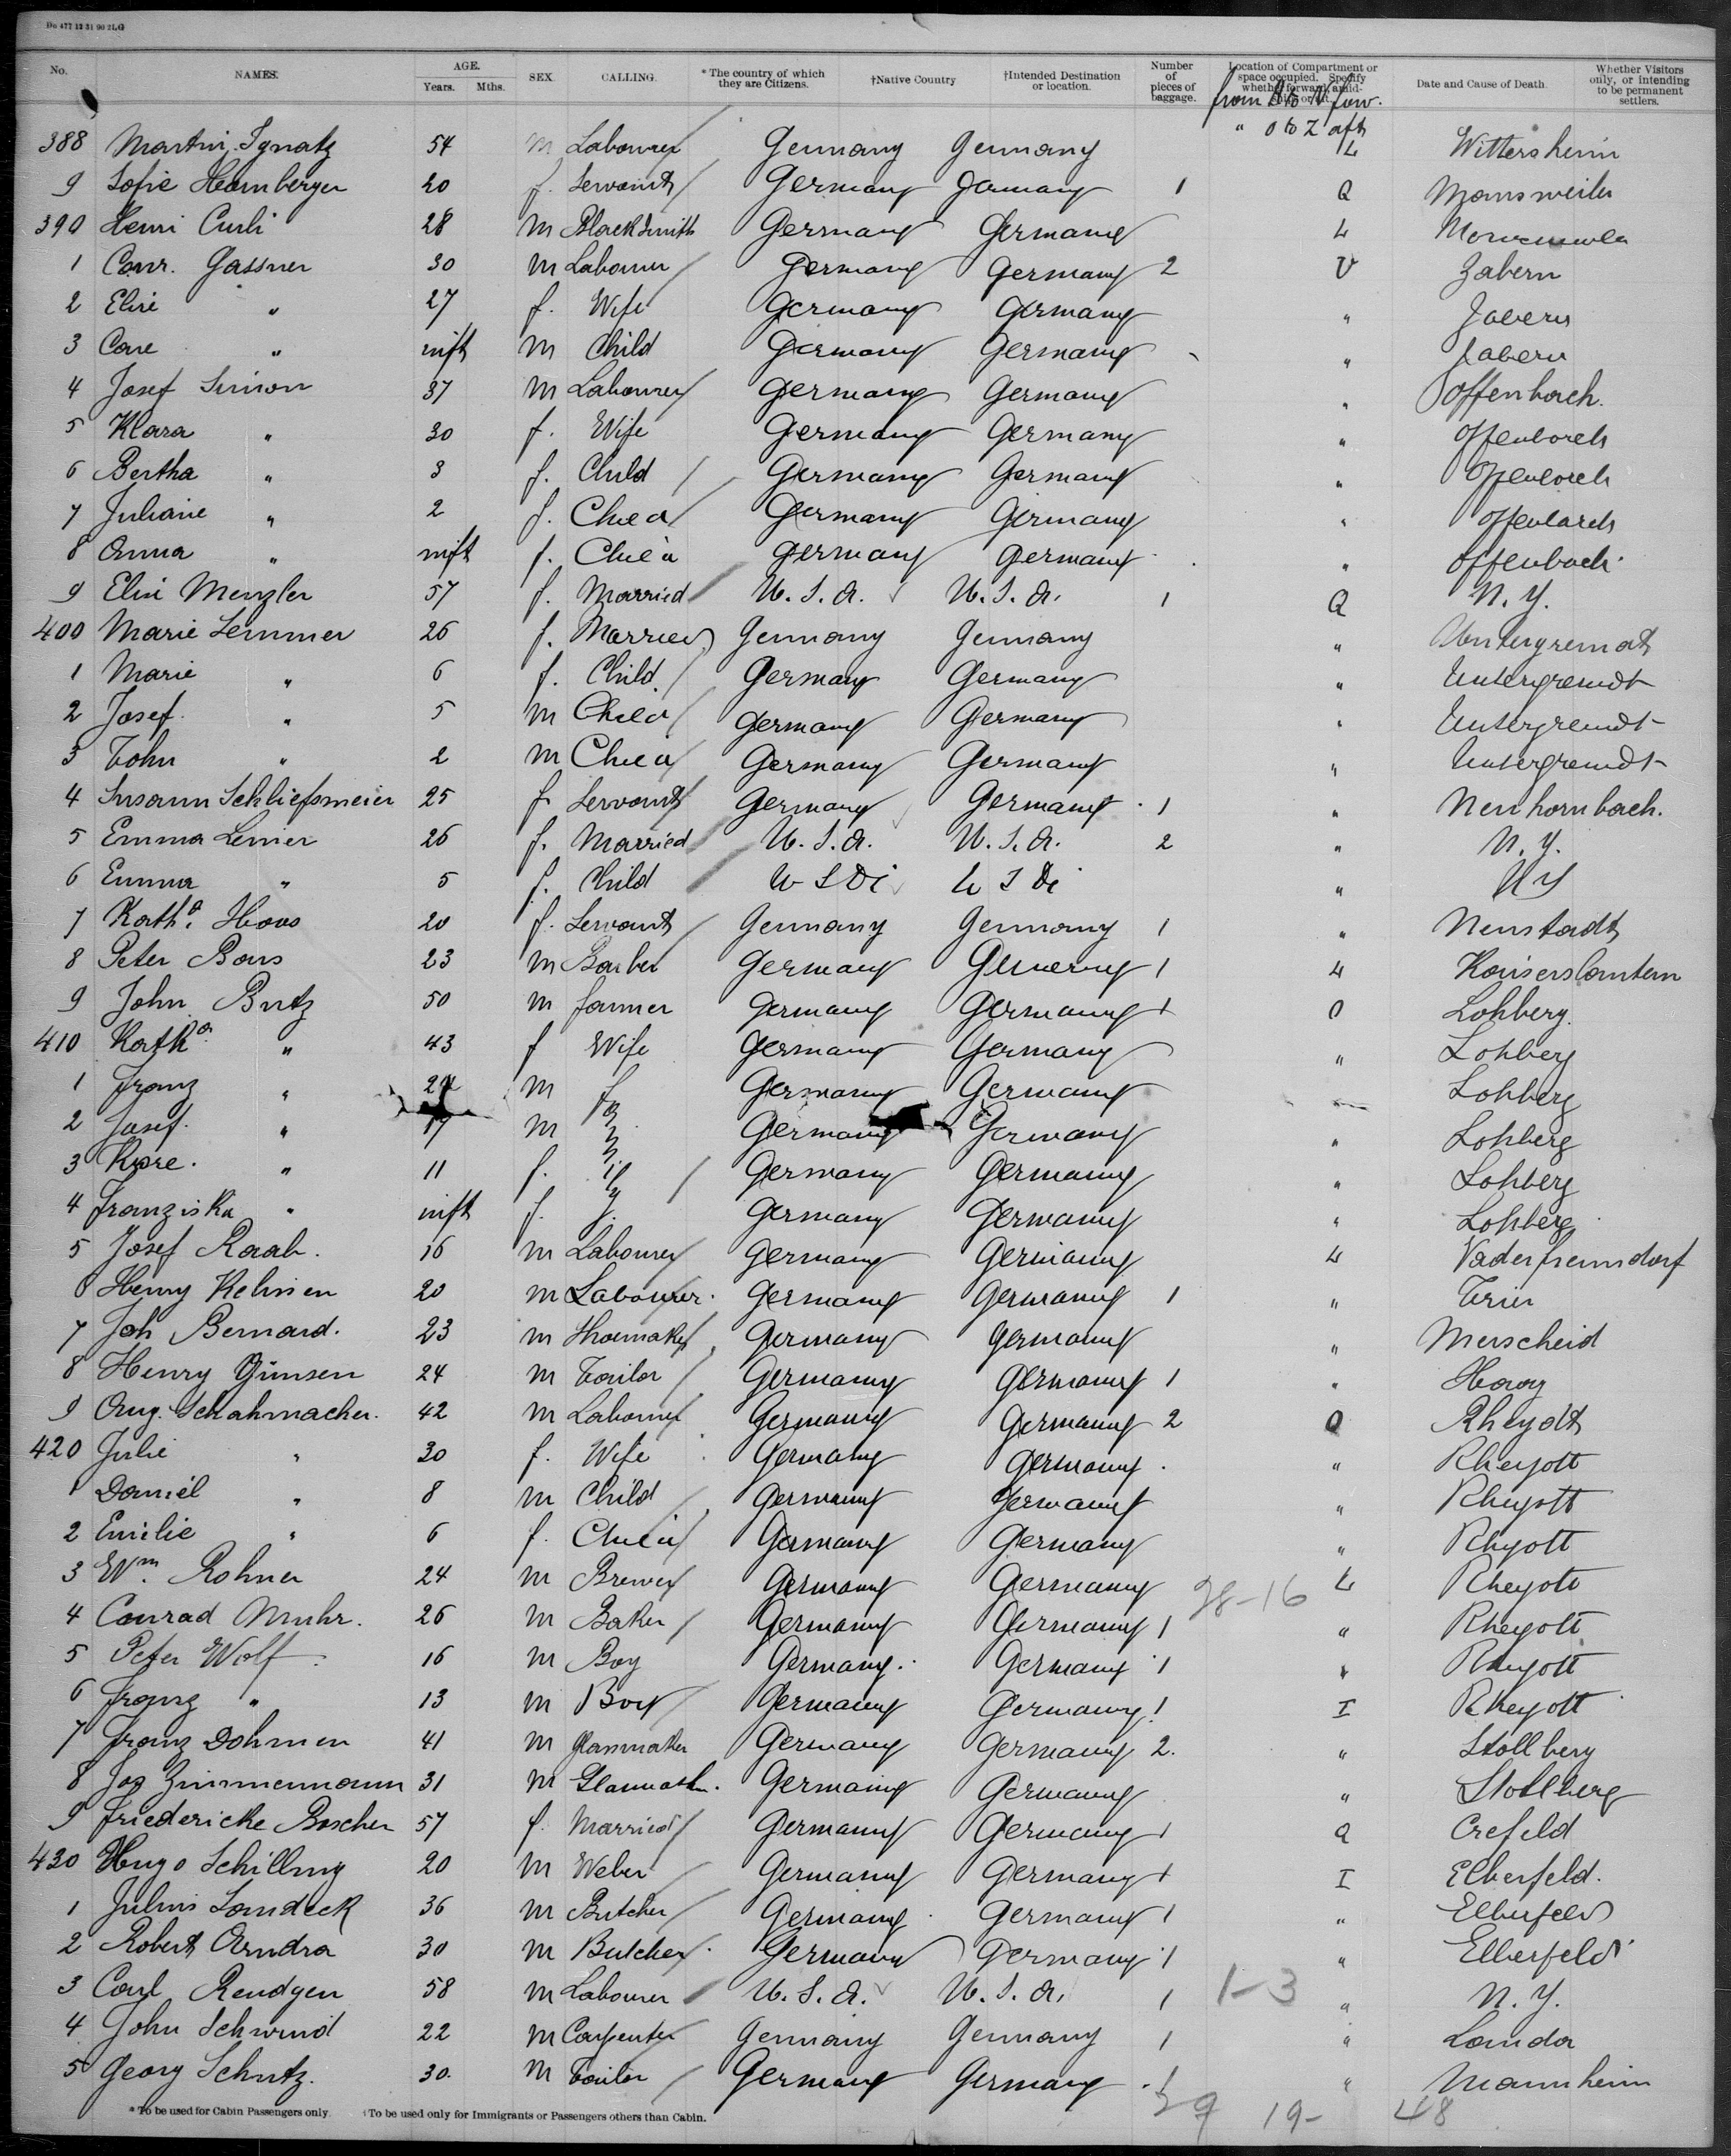 Do 477 12 31 90 2LG
No. NAMES. AGE. Years. Mths. SEX. CALLING. *The country of which they are Citizens. †Native Country †Intended Destination or location. Number of pieces of baggage. Location of Compartment or space occupied. Specify whether forward, amidships or aft. Date and Cause of Death. Whether Visitors only, or intending to be permanent settlers.
from A to N forw.
" O to Z aft
388 Martin Ignatz 54 m Labourer Germany Germany L Wittersheim
9 Sofie 20 f. Servant Germany Germany 1 Q
390 Henri 28 m Blacksmith Germany Germany L
1 Conr. Gassner 30 m Labourer Germany Germany 2 V Zabern
2 Elise " 27 f. Wife Germany Germany " Zabern
3 " inft m Child Germany Germany " Zabern
4 Josef Simon 37 m Labourer Germany Germany " Offenbach.
5 Klara " 30 f. Wife Germany Germany " Offenbach
6 Bertha " 3 f. Child Germany Germany " Offenbach
7 Juliane " 2 f. Child Germany Germany " Offenbach
8 Anna " inft f. Child Germany Germany " Offenbach
9 Elise Menzler 57 f. Married U.S.A. U.S.A. 1 Q N.Y.
400 Marie Lemmer 26 f. Married Germany Germany "
1 Marie " 6 f. Child Germany Germany "
2 Josef " 5 m Child Germany Germany "
3 John " 2 m Child Germany Germany "
4 Susann Schliefsmeier 25 f. Servant Germany Germany 1 " Neuhornbach.
5 Emma 26 f. Married U.S.A. U.S.A. 2 " N.Y.
6 Emma " 5 f. Child U S A U S A " N Y
7 Katha. Hoos 20 f. Servant Germany Germany 1 " Neustadt
8 Peter 23 m Barber Germany Germany 1 L Kaiserslautern
9 John Butz 50 m farmer Germany Germany 1 O Lohberg.
410 Katha " 43 f Wife Germany Germany " Lohberg
1 Franz " m Germany Germany Lohberg
2 Josef. " 17 m Germany Germany " Lohberg
3 " 11 f. Germany Germany " Lohberg
4 Franziska " inft f. Germany Germany " Lohberg
5 Josef Raab. 16 m Labourer Germany Germany L
6 Henry 20 m Labourer. Germany Germany 1 " Trier
7 Joh Bernard. 23 m Shoemaker Germany Germany " Merscheid
8 Henry Günsen 24 m Tailor Germany Germany 1 "
9 Aug. Schahmacher. 42 m Labourer Germany Germany 2 O Rheydt
420 Julie " 30 f. Wife Germany Germany " Rheydt
1 Daniel " 8 m Child Germany Germany " Rheydt
2 Emilie " 6 f. Child Germany Germany " Rheydt
3 Wm. Rohner 24 m Brewer Germany Germany L Rheydt
4 Conrad Muhr. 26 m Baker Germany Germany 1 " Rheydt
5 Peter Wolf 16 m Boy Germany Germany 1 " Rheydt
6 Franz " 13 m Boy Germany Germany 1 I Rheydt
7 Franz Dohmen 41 m Glasmaker Germany Germany 2. " Stollberg
8 Jos Zimmermann 31 m Germany Germany " Stollberg
9 Friedericke Boscher 57 f. Married Germany Germany 1 Q Crefeld
430 Hugo Schilling 20 m Weber Germany Germany 1 I Elberfeld.
1 Julius Landeck 36 m Butcher Germany Germany 1 " Elberfeld
2 Robert Arndra 30 m Butcher Germany Germany 1 " Elberfeld
3 Carl Rendgen 58 m Labourer U.S.A. U.S.A. 1 1-3 " N.Y.
4 John Schwind 22 m Carpenter Germany Germany 1 " Landa
5 Georg Schutz. 30. m Tailor Germany Germany 1 " Mannheim
19- 48
*To be used for Cabin Passengers only. †To be used only for Immigrants or Passengers others than Cabin.